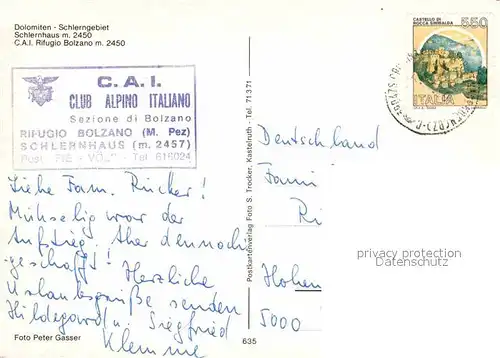 Dolomiten - Schlerngebiet
Schlernhaus m. 2450
C.A.I. Rifugio Bolzano m. 2450
C.A.I.
CLUB ALPINO ITALIANO
Sezione di Bolzano
RIFUGIO BOLZANO (M. Pez)
SCHLERNHAUS (m. 2457)
Tel 616024
Liebe Fam. Rücker!
Mühselig war der
Aufstieg. Aber dennoch
geschafft! Herzliche
Urlaubsgrüße senden
Hildegard u. Siegfried
Klemme
Foto Peter Gasser
635
Postkartenverlag Foto S. Trocker, Kastelruth - Tel. 71371
CASTELLO DI
ROCCA SINIBALDA
550
ITALIA
Deutschland
Fami
Ri
Hohen
5000
privacy protection
Datenschutz